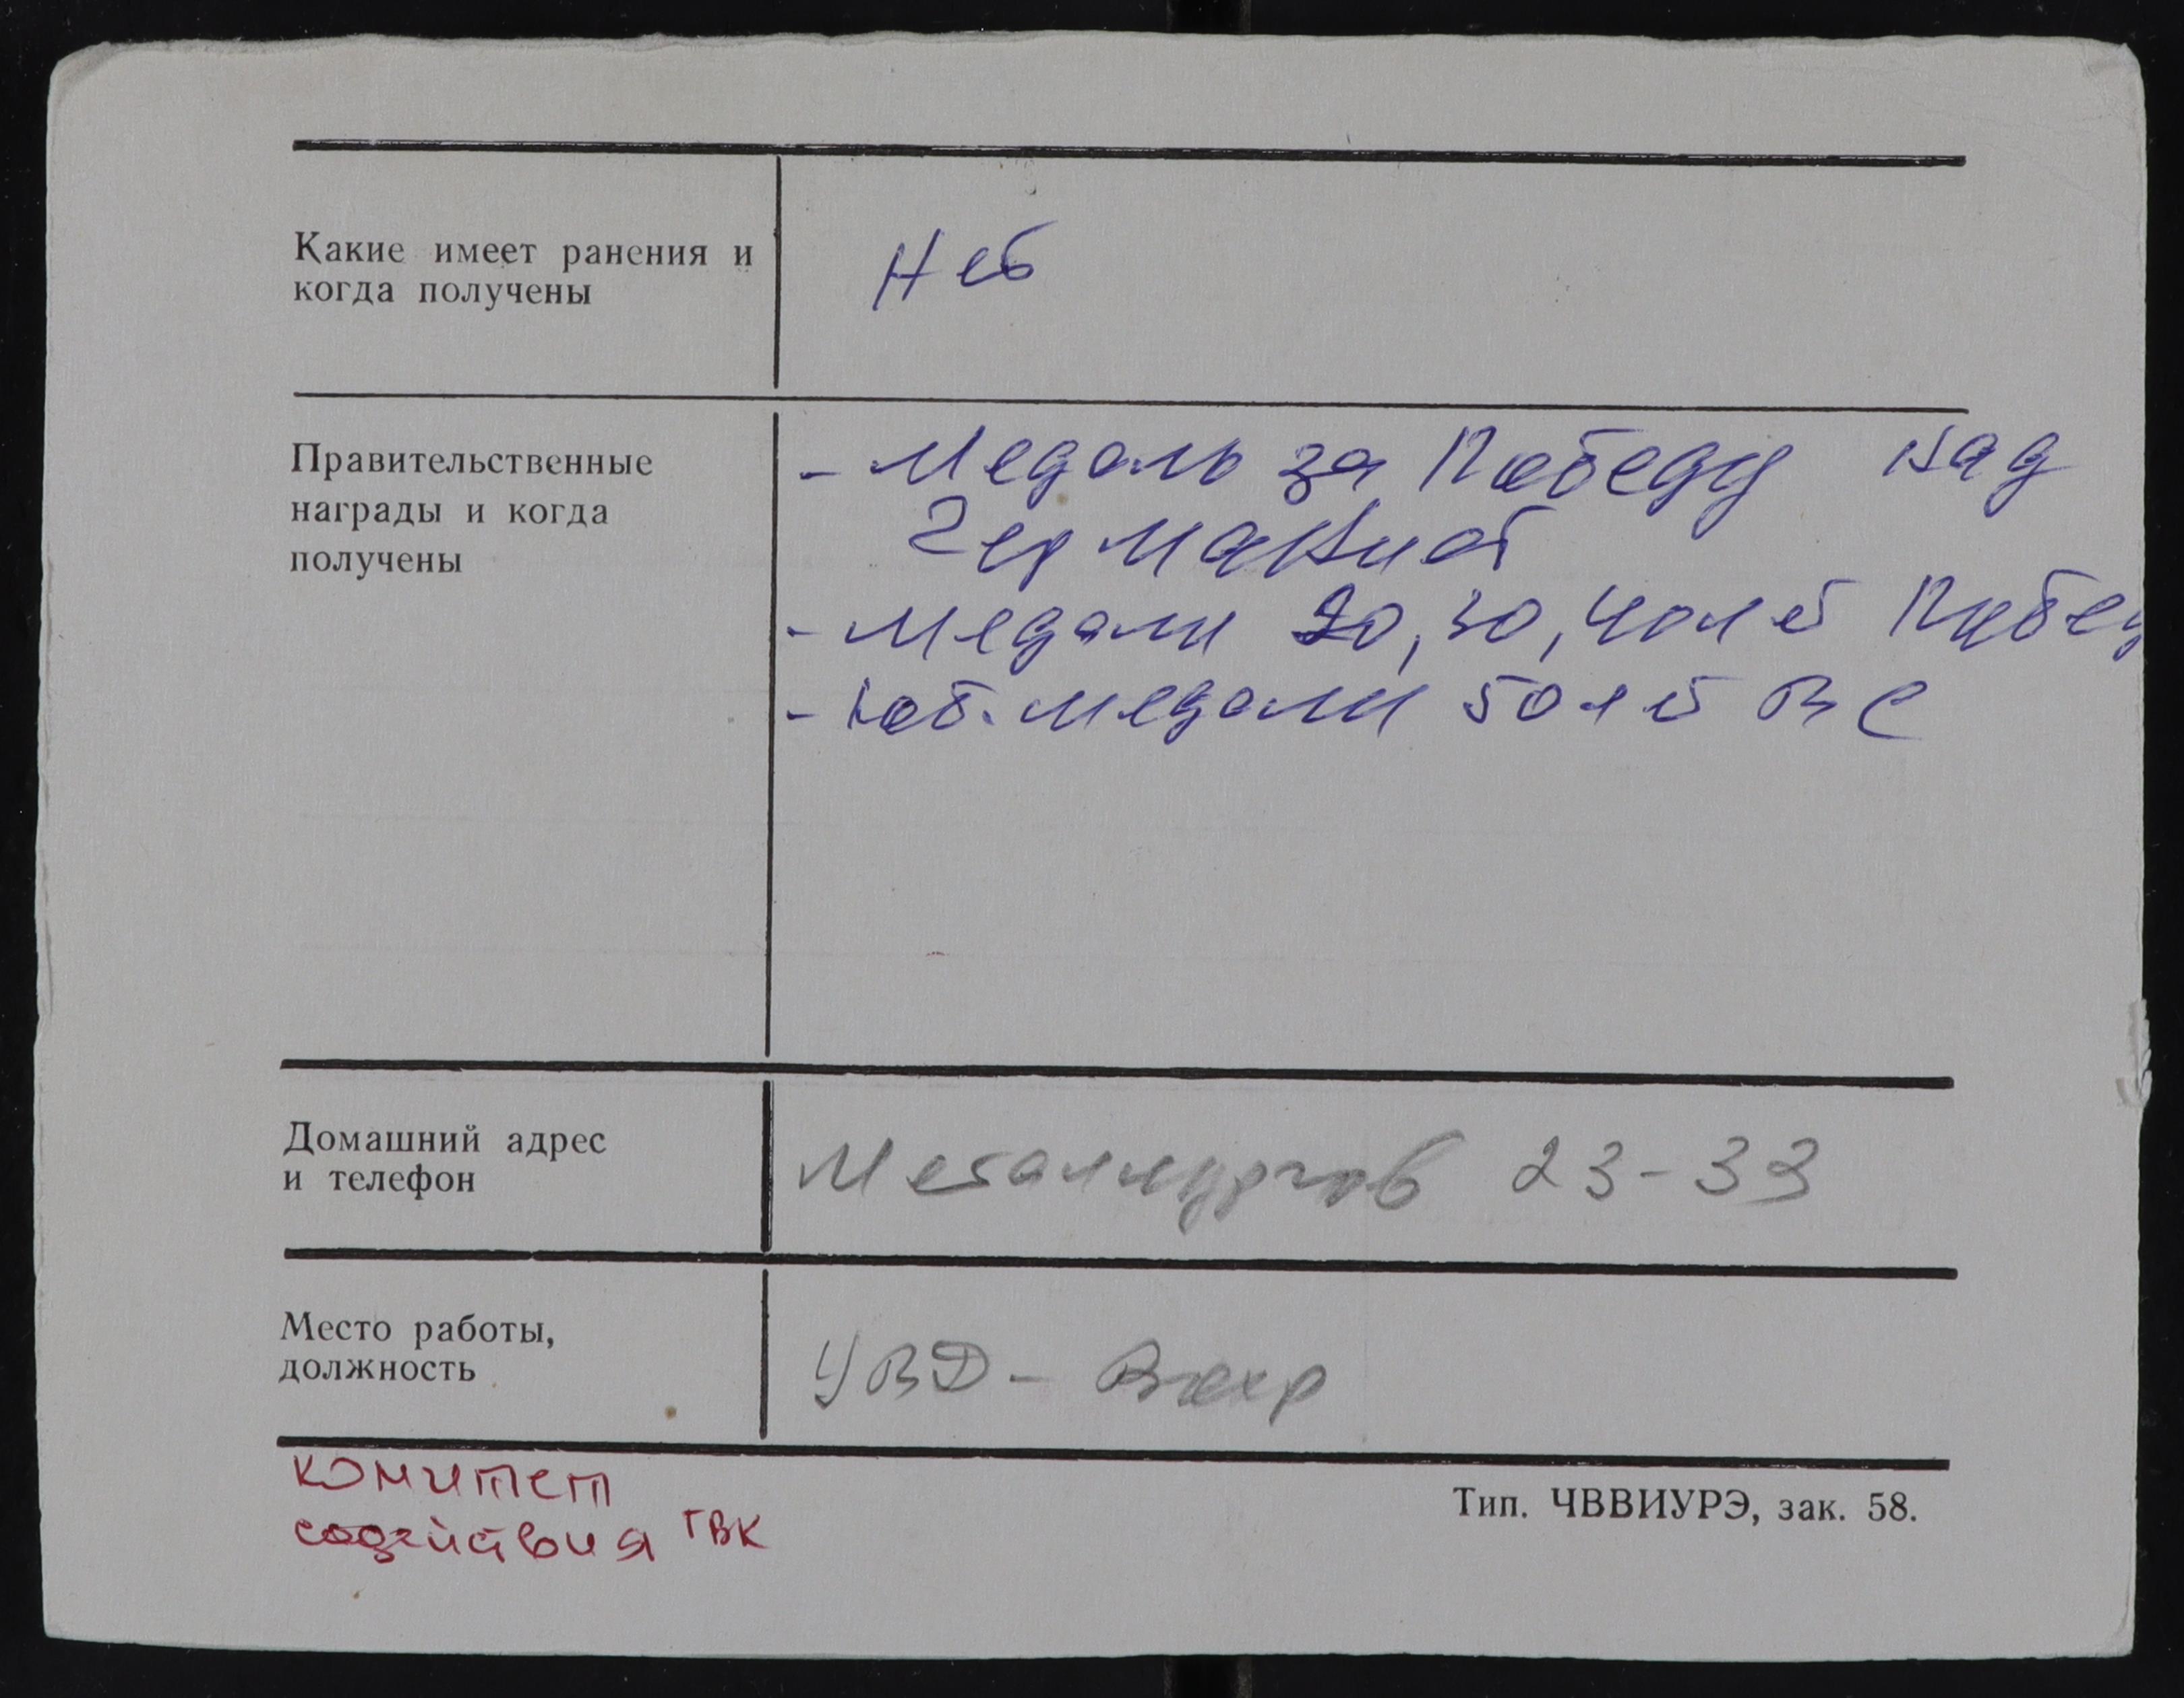 Какие имеет ранения и
когда получены
Нет
Правительственные
награды и когда
получены
- Медаль за Победу над
Германией
- Медали 20, 30, 40 лет Побед
- Юб. медали 50 лет ВС
Домашний адрес
и телефон
Металлургов 23-33
Место работы,
должность
УВД -
комитет
содействия ГВК
Тип. ЧВВИУРЭ, зак. 58.